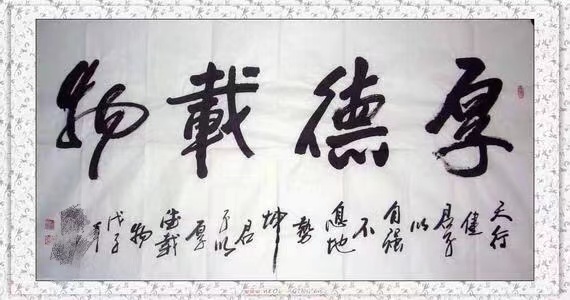 厚德載物
天行健君子以自强不息地勢坤君子以厚德載物
戊子年